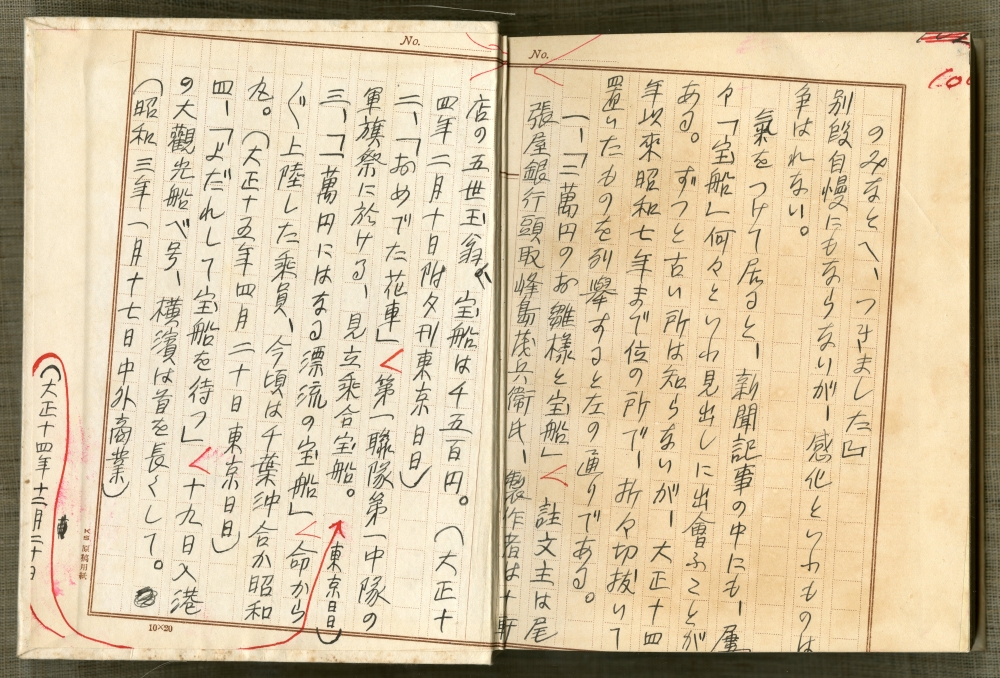 No.
のみなと へ、つきました凹
別段自慢にもならないが、感化といふものは
争はれない。
氣をつけて居ると、新聞記事の中にも、屢
々「宝船」何々といふ見出しに出會ふことが
ある。ずつと古い所は知らないが、大正十四
年以來昭和七年まで位の所で、折々切抜いて
置いたものを列擧すると左の通りである。
一、「二萬円のお雛様と宝船」 註文主は尾
張屋銀行頭取峰島茂兵衞氏、製作者は十軒
No.
店の五世玉翁 宝船は千五百円。(大正十
四年二月十日附夕刊東京日日)
二、「おめでた花車」 第一聯隊第一中隊の
軍旗祭に於ける、見立乘合宝船。(東京日日)
三、「一萬円にはなる漂流の宝船」 命から
〲上陸した乘員、今頃は千葉沖合か昭和
丸。(大正十五年四月二十日東京日日)
四、「よだれして宝船を待つ」 十九日入港
の大觀光船ベ号、横濱は首を長くして。
(昭和三年一月十七日中外商業)
(大正十四年十二月二十日
原稿用紙
10×20